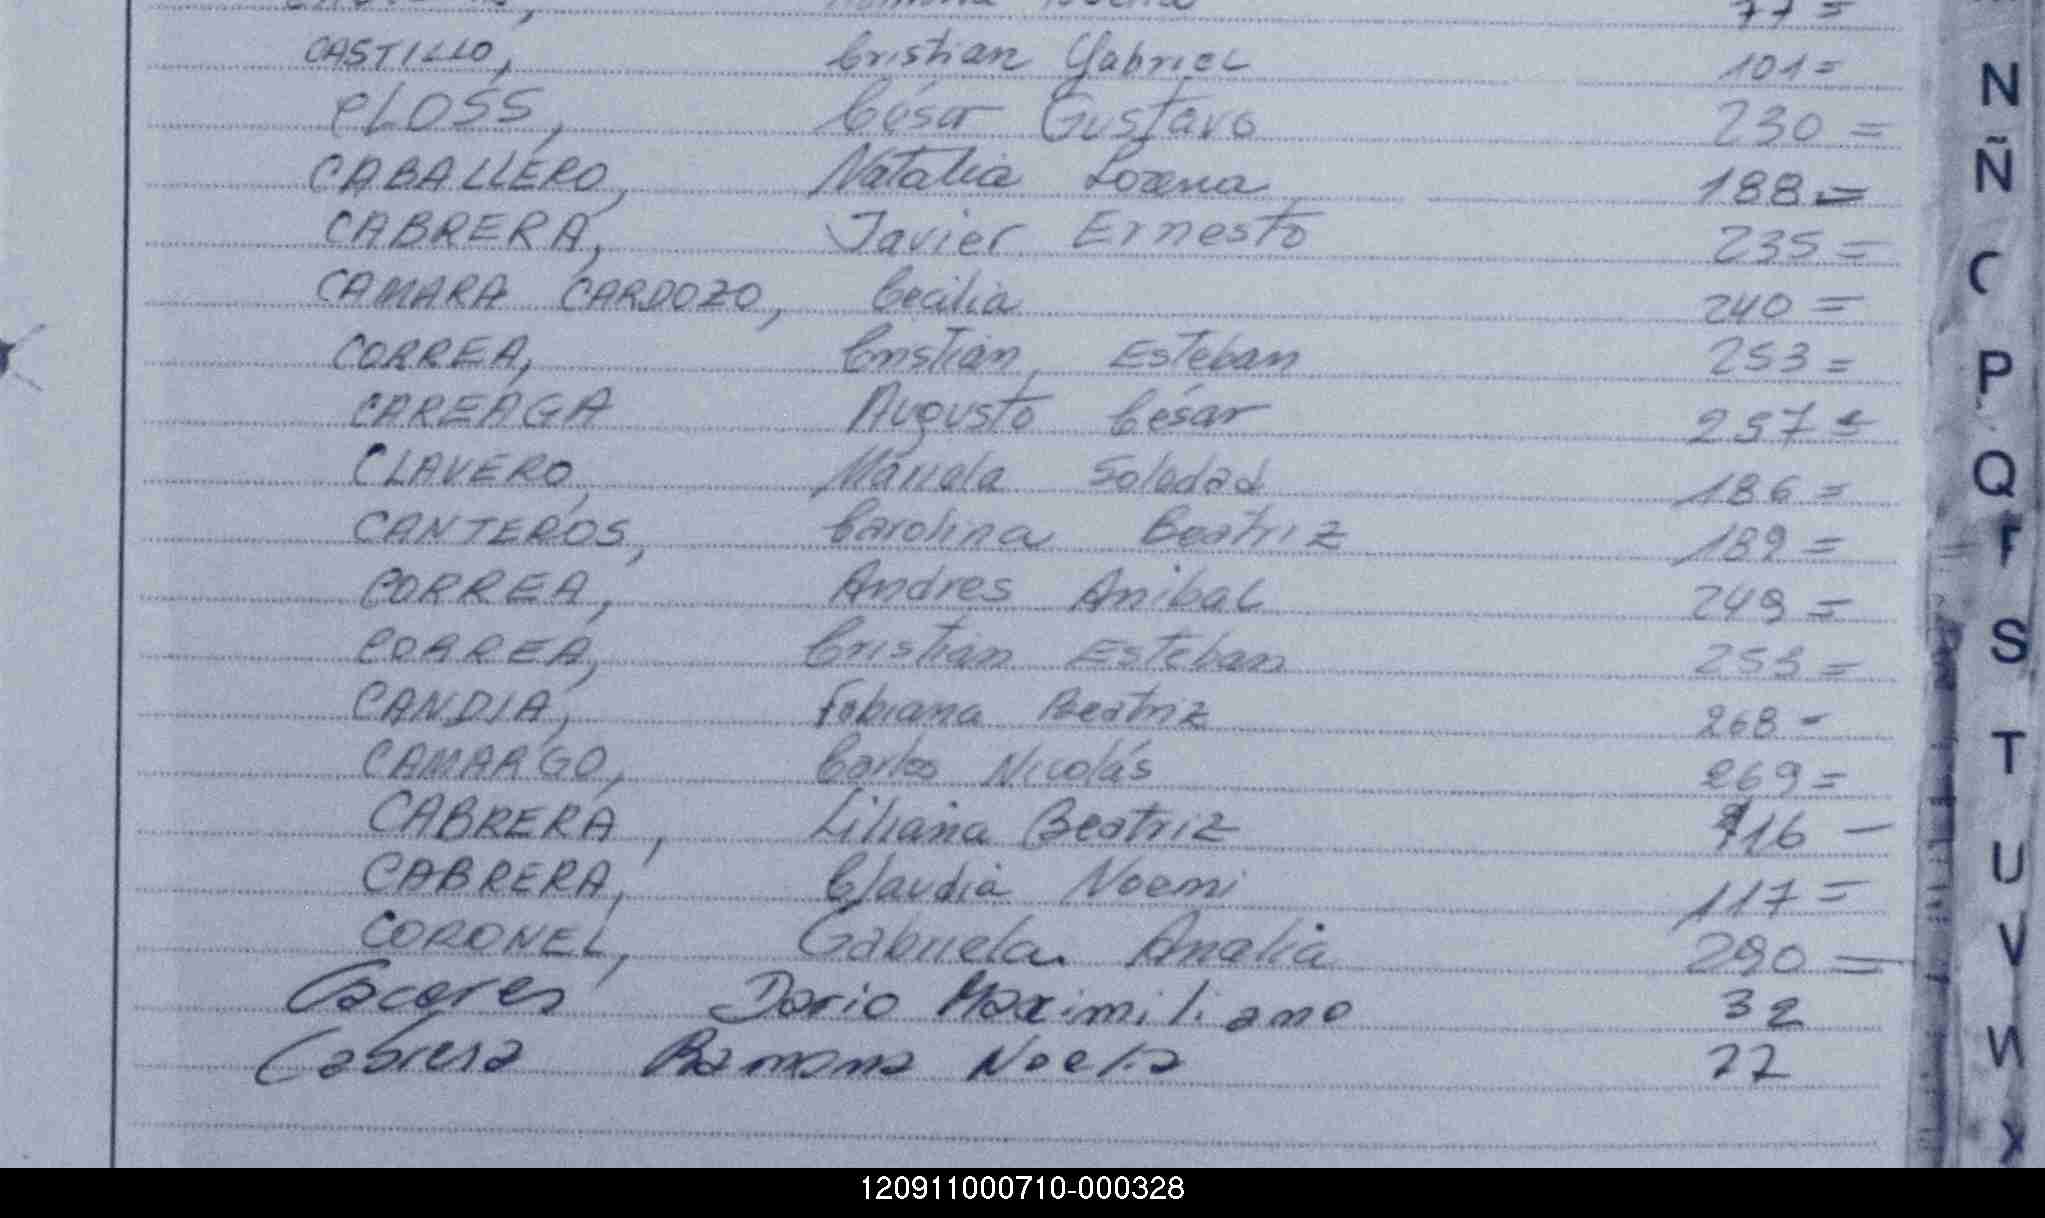 77=
CASTILLO, Cristian Gabriel 101=
CLOSS, César Gustavo 230=
CABALLERO, Natalia Lorena 188=
CABRERA, Javier Ernesto 235=
CAMARA CARDOZO, Cecilia 240=
CORREA, Cristian, Esteban 253=
CAREAGA Augusto César 257=
CLAVERO, Mariela Soledad 186=
CANTEROS, Carolina Beatriz 189=
CORREA, Andres Anibal 249=
CORREA, Cristian Esteban 253=
CANDIA, Fabiana Beatriz 268-
CAMARGO, Carlos Nicolás 269=
CABRERA, Liliana Beatriz 116-
CABRERA, Claudia Noemi 117=
CORONEL, Gabriela Analia 290=
Caceres Dario Maximiliano 32
Cabrera Ramona Noelia 77
N
Ñ
C
P
Q
F
S
T
U
V
W
X
120911000710-000328